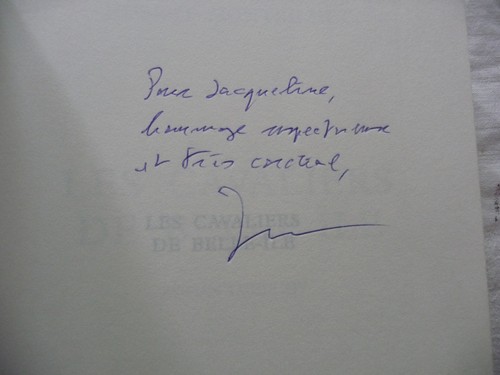 Pour Jacqueline,
hommage respectueux
et très cordial,
LES CAVALIERS
DE BELLE-ILE